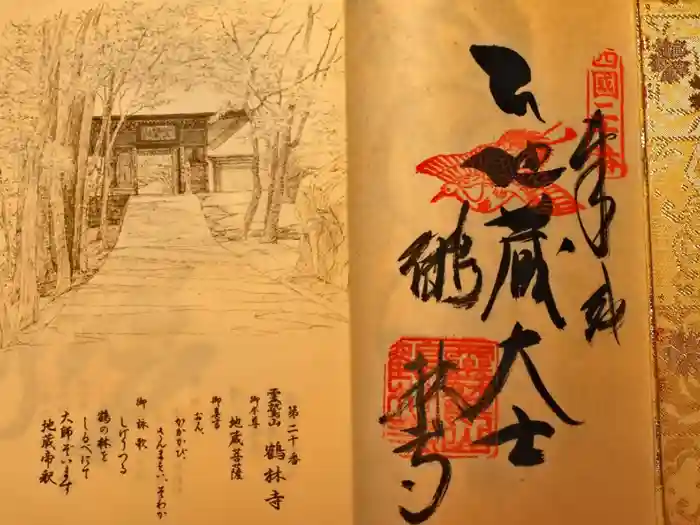 第二十番
霊鷲山 鶴林寺
御本尊
地蔵菩薩
御真言
おん、
かかかび、
さんまえい、そわか
御詠歌
しげりつる
鶴の林を
しるべにて
大師ぞいます
地蔵帝釈
奉
地蔵大士
鶴林寺